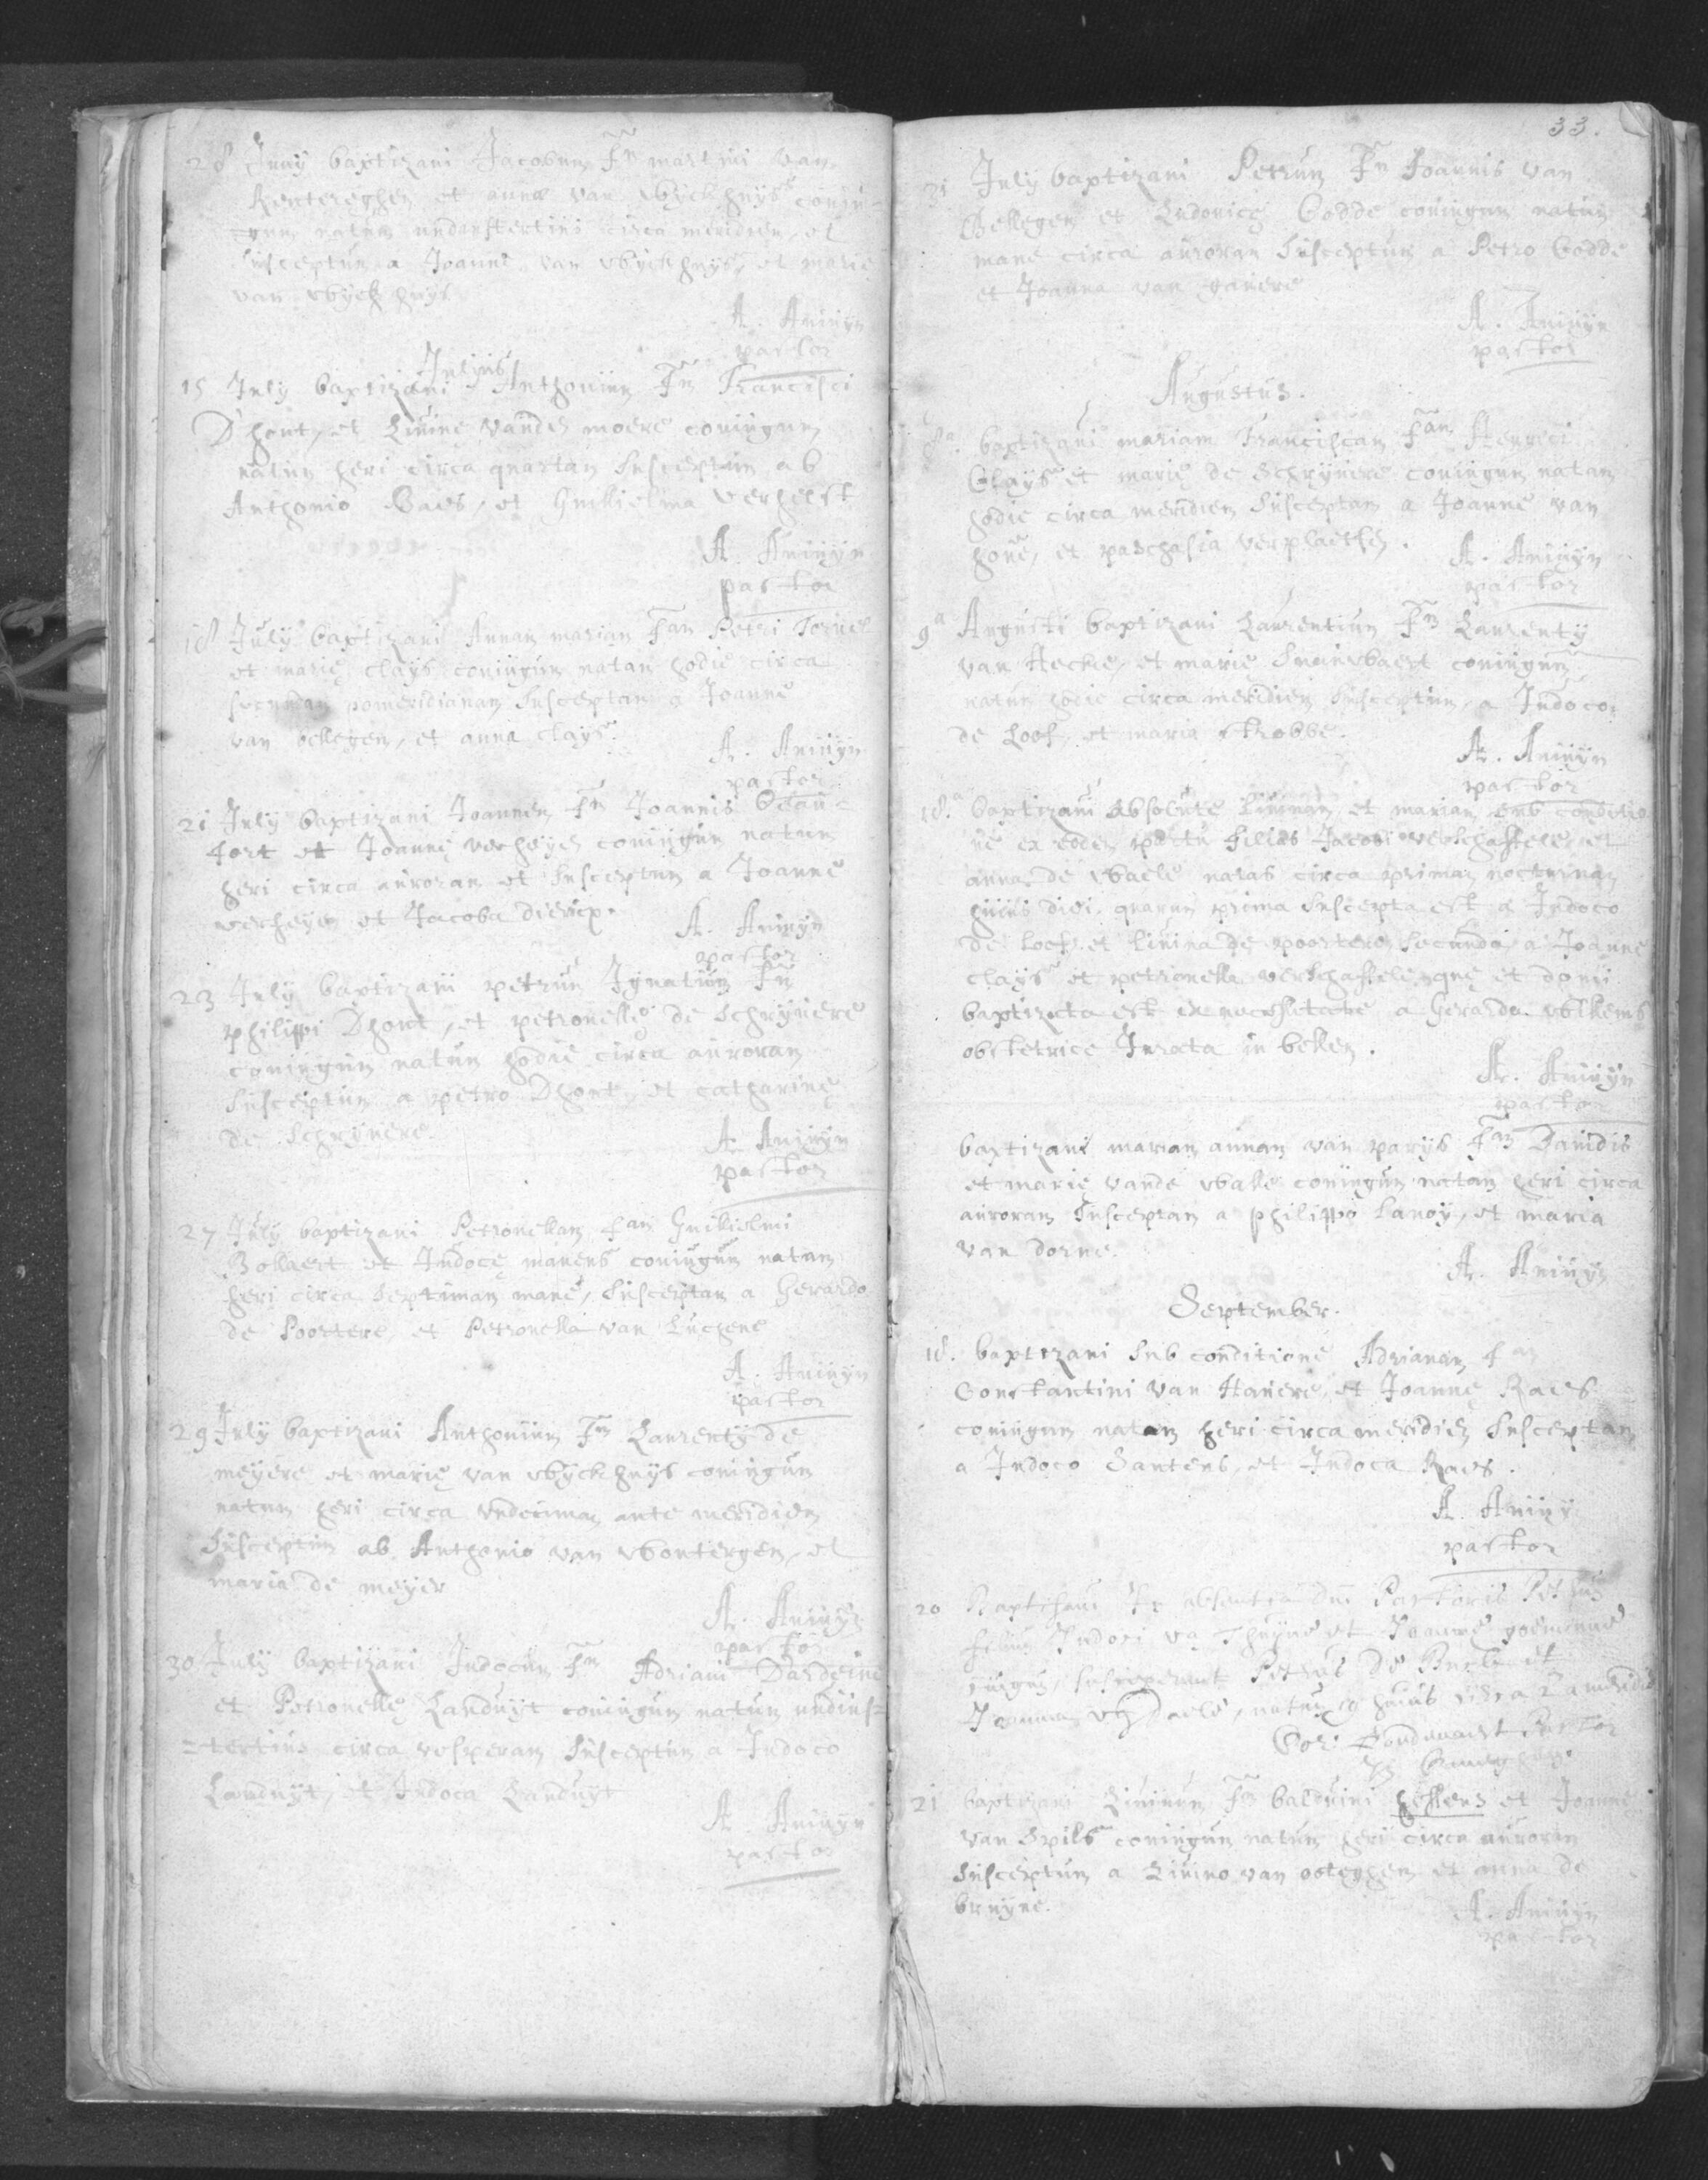 28 Juny baptizavi Jacobum fm martini van
Rentereghem et annæ van wyckhuys coniu=
=gum natum nudiustertius circa meridiem et
susceptum a Joanne van wyckhuys, et maria
van wyckhuys
A. Aniuyn
pastor
Julyus
15 July baptizavi Anthonium fm Francisci
D'hont, et Livinę vander moere coniugum
natum heri circa quartam susceptum ab
Anthonio Baes, et Guilielma verhelst
A. Aniuyn
pastor
18 July baptizavi Annam mariam fam Petri
et marię clays coniugum natam hodie circa
secundam pomeridianam susceptam a Joanne
van bellegen, et anna clays
A. Aniuyn
pastor
21 July baptizavi Joannem fm Joannis Beau=
fort et Joannę verheyen coniugum natum
heri circa auroram et susceptum a Joanne
verheyen et Jacoba diericx.
A. Aniuyn
pastor
23 July baptizavi petrum Ignatium fm
philippi Dhont, et petronellę de Schryvere
coniugum natum hodie circa auroram
susceptum a petro Dhont, et catharinę
de Schryvere.
A. Aniuyn
pastor
27 July baptizavi Petronellam fam Guilielmi
Bollaert et Judocę manens coniugum natam
heri circa septimam mane, susceptam a Gerardo
de Poortere, et Petronella van Luchene
A. Aniuyn
pastor
29 July baptizavi Anthonium fm Laurenty de
meyere et marię van wyckhuys coniugum
natum heri circa undecimam ante meridiem
susceptum ab Anthonio van wontergem, et
maria de meyer
A. Aniuyn
pastor
30 July baptizavi Judocum fm Adriani
et Petronellę Landuyt coniugum natum nudius=
=tertius circa vesperam susceptum a Judoco
Landuyt, et Judoca Landuyt
A. Aniuyn
pastor
33.
31 July baptizavi Petrum fm Joannis van
Bellegen et Ludovicę Codde coniugum natum
mane circa auroram susceptum a Petro Codde
et Joanna van havere
A. Aniuyn
pastor
Augustus.
8a. baptizavi mariam Franciscam fam Henrici
Clays et marię de Schryvere coniugum natam
hodie circa meridiem susceptam a Joanne van
hove, et paschasia verplaetsen.
A. Aniuyn
pastor
9a Augusti baptizavi Laurentium fm Laurenty
van Hecke, et marię coniugum
natum hodie circa meridiem susceptum, a Judoco
de Loof, et maria strobbe.
A. Aniuyn
pastor
18.a baptizavi absolute Livinam, et mariam sub conditio
ne ex eodem partu filias Jacobi verschaffele, et
anna de waele natas circa primam nocturnam
huius diei. quarum prima suscepta est a Judoco
de Loof, et livina de poortere, secunda a Joanne
clays et petronella verschaffele, quę et domi
baptizata est ex necessitate a Gerarda
obstetrice Jurata in beken.
A. Aniuyn
pastor
baptizavi mariam annam van parys fam Davidis
et marię vande walle coniugum natam heri circa
auroram susceptam a philippo Lanoy, et maria
van dorne.
A. Aniuyn
September.
18. baptizavi sub conditione Adrianam fam
Constantini van Havere, et Joannę Raes
coniugum natam heri circa meridiem susceptam
a Judoco Santens, et Judoca Raes.
A. Aniuy
pastor
20 Baptisavi in absentia dni Pastoris Petrus
filius Judoci va et Joannę
susceperunt Petrus de et
Joanna natus 19 huius circa 2 a meridie
Pastor
21 baptizavi Livinum fm balduini hellens et Joannę
van Spils coniugum natum heri circa auroram
susceptum a Livino van ooteghem et anna de
bruyne.
A. Aniuyn
pastor